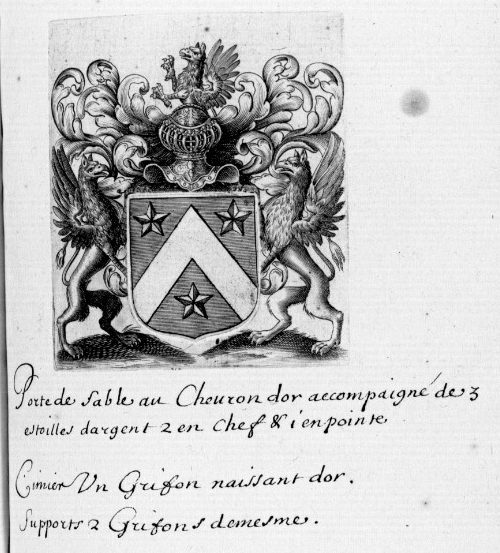 Porte de sable au Cheuron dor accompaigné de 3
estoilles dargent 2 en chef & i en pointe
Cimier Vn Grifon naissant dor.
Supports 2 Grifons demesme.